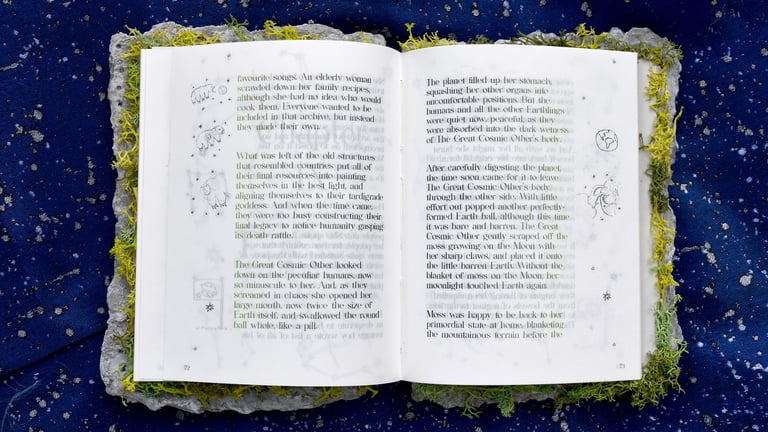 favourite songs. An elderly woman
scrawled down her family recipes,
although she had no idea who would
cook them. Everyone wanted to be
included in that archive, but instead
they made their own.
What was left of the old structures
that resembled countries put all of
their final resources into painting
themselves in the best light, and
aligning themselves to their tardigrade
goddess. And when the time came,
they were too busy constructing their
final legacy to notice humanity gasping
its death rattle.
The Great Cosmic Other looked
down on the peculiar humans, now
so minuscule to her. And, as they
screamed in chaos she opened her
large mouth, now twice the size of
Earth itself, and swallowed the round
ball whole, like a pill.
22
The planet filled up her stomach,
squashing her other organs into
uncomfortable positions. But the
humans and all the other Earthlings
were quiet now, peaceful, as they
were absorbed into the dark wetness
of The Great Cosmic Other's body.
After carefully digesting the planet,
the time soon came for it to leave
The Great Cosmic Other's body
through the other side. With little
effort out popped another perfectly-
formed Earth ball, although this time
it was bare and barren. The Great
Cosmic Other gently scraped off the
moss growing on the Moon with
her sharp claws, and placed it onto
the little barren Earth. Without the
blanket of moss on the Moon, her
moonlight touched Earth again.
Moss was happy to be back to her
primordial state at home, blanketing
the mountainous terrain before the
23